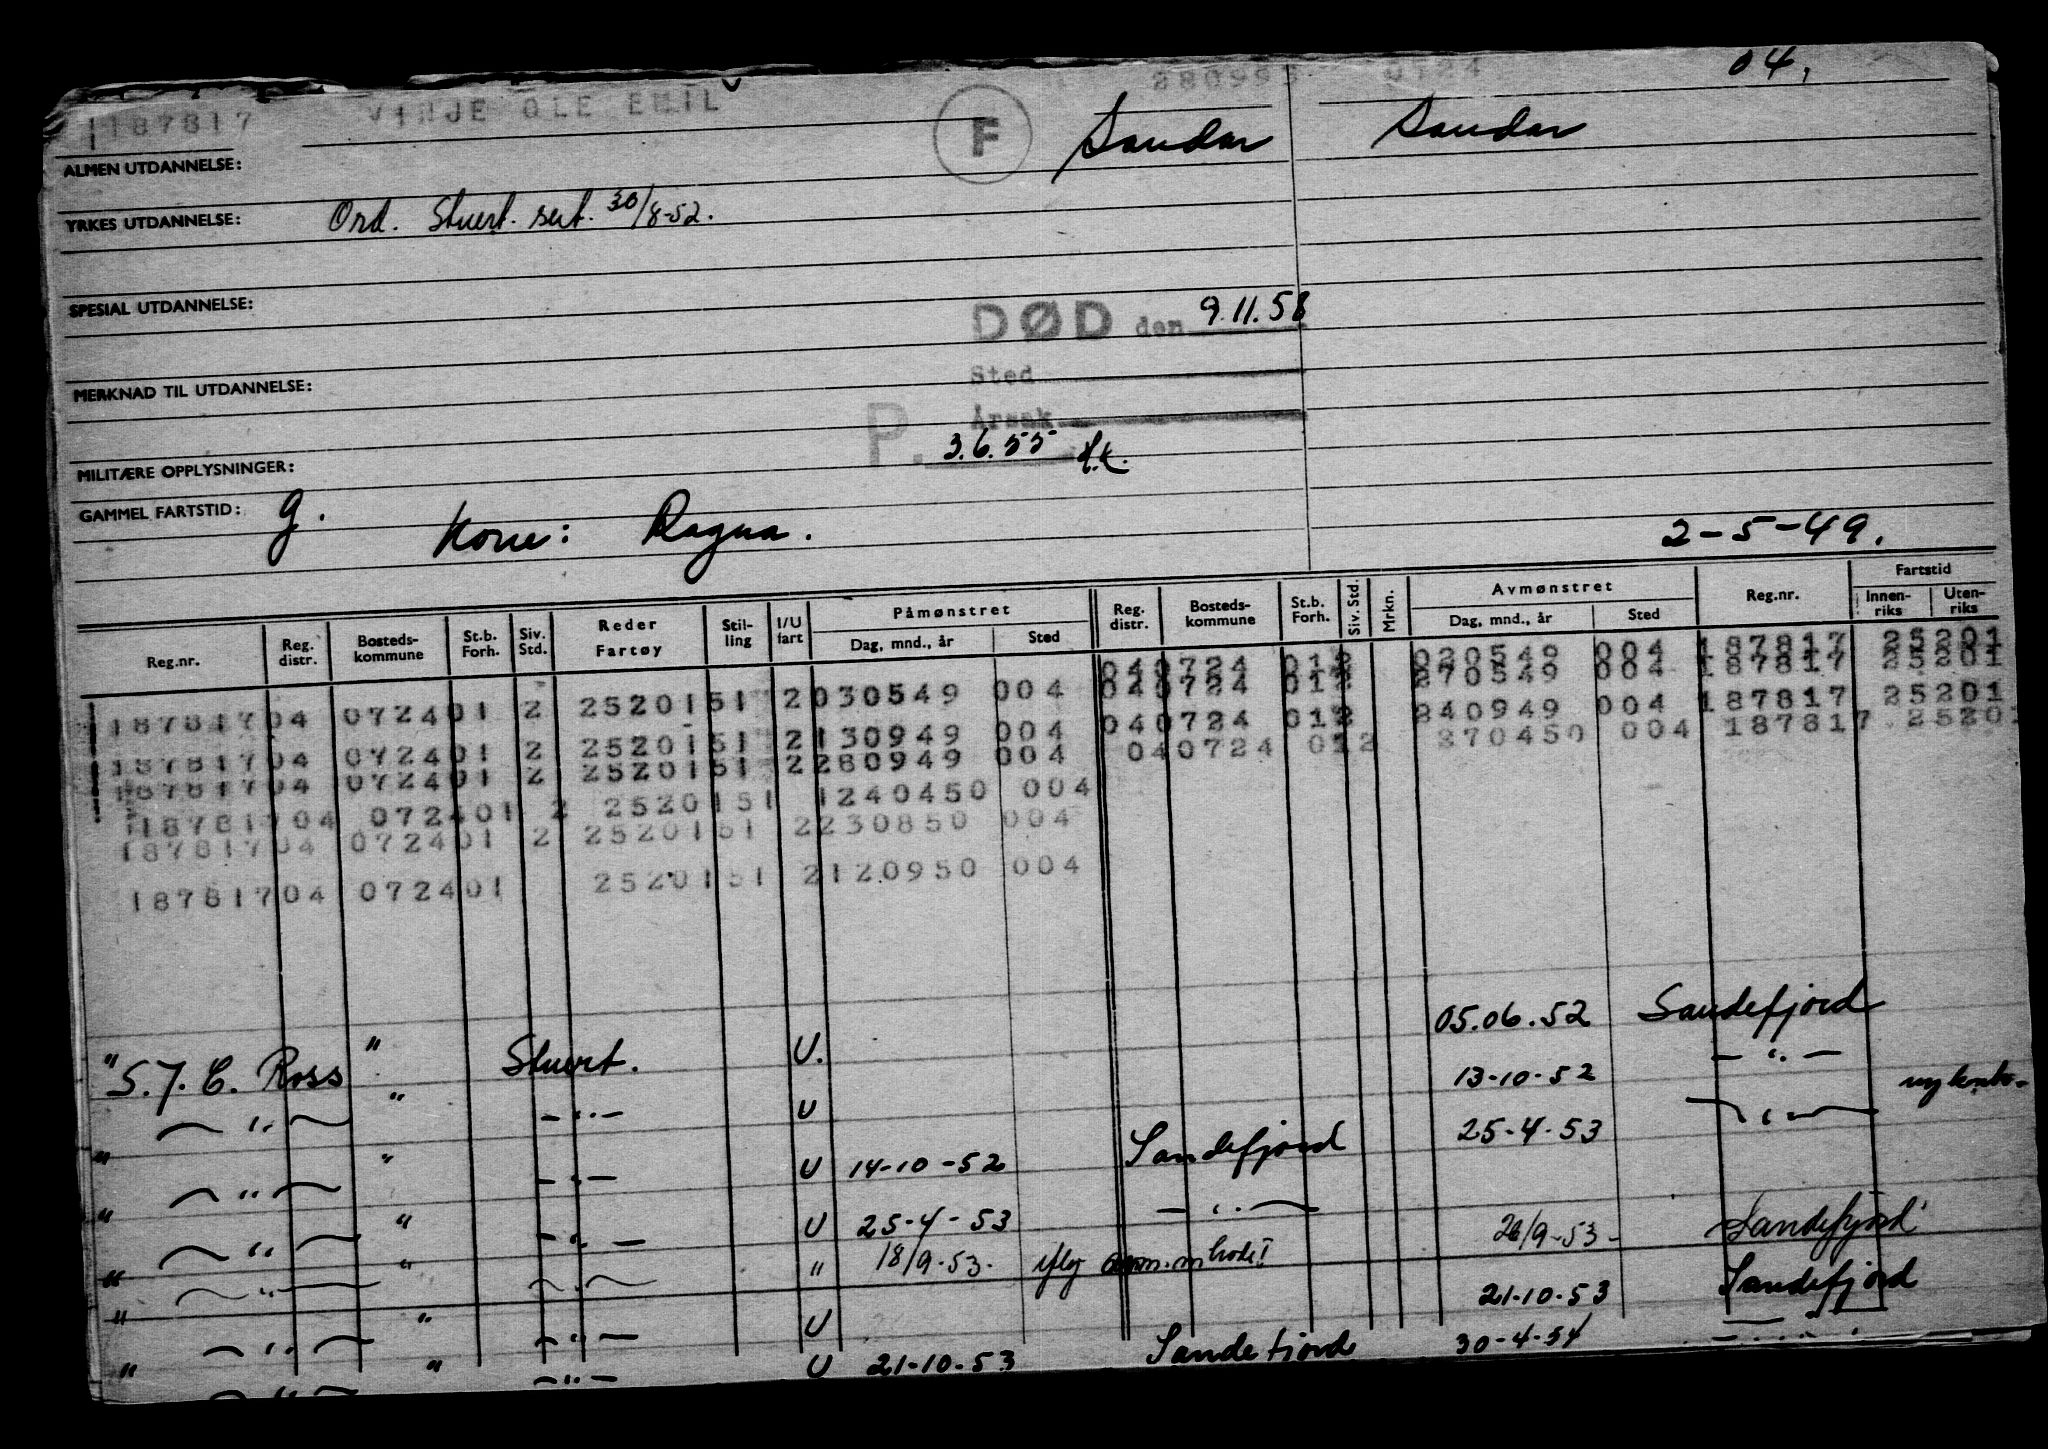 04.
187817 VINJE OLE EMIL 280995 0724
F Sandar Sandar
ALMEN UTDANNELSE:
YRKES UTDANNELSE: Ord. Stuert. sert. 30/8-52.
SPESIAL UTDANNELSE:
DØD den 9.11.58
Sted
MERKNAD TIL UTDANNELSE:
Årsak
P. 3.6.55 H.K.
MILITÆRE OPPLYSNINGER:
GAMMEL FARTSTID: g.
Kone: Ragna. 2-5-49.
Reg.nr. Reg. distr. Bosteds-kommune St.b. Forh. Siv. Std. Reder Fartøy Stil-ling I/U fart Påmønstret Dag, mnd., år Sted Reg. distr. Bosteds-kommune St.b. Forh. Siv. Std. Mrkn. Avmønstret Dag, mnd., år Sted Reg.nr. Fartstid Innen-riks Uten-riks
040724 012 020549 004 187817 25201
18781704 072401 2 2520151 2030549 004 040724 012 270549 004 187817 25201
18781704 072401 2 2520151 2130949 004 040724 012 240949 004 187817 25201
18781704 072401 2 2520151 2280949 004 040724 012 270450 004 187817 25201
18781704 072401 2 2520151 1240450 004
18781704 072401 2 2520151 2230850 004
18781704 072401 2520151 2120950 004
"S.J.E. Ross " Stuert. U. 05.06.52 Sandefjord
— " — " — " — U 13-10-52 — " —
" — " — " — " — U 14-10-52 Sandefjord 25-4-53 — " —
" — " — " — " — U 25-4-53 — " —
" — " — " — " — " 18/9-53. iflg 26/9-53 - Sandefjord
" — " — " — " — U 21-10-53 Sandefjord
" — " — " — " — U 21-10-53 Sandefjord 30-4-54 — " —